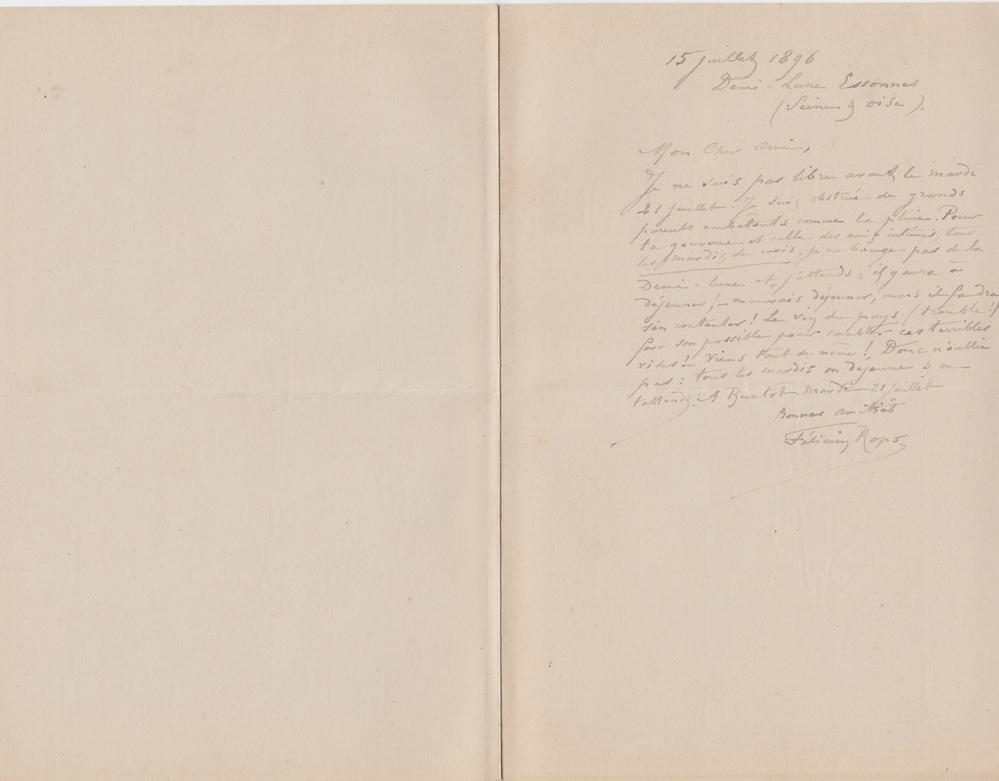 15 juillet 1896
Demi-Lune Essonnes
(Seine & Oise).
Mon Cher Ami,
Je ne suis pas libre avant le mardi
21 juillet. Je suis obstrué de grands
parents embêtants comme la pluie. Pour
ta gouverne et celle des amis intimes, tous
les mardis du mois, je ne bouge pas de la
Demi-lune et j'attends, il y aura à
déjeuner, – mauvais déjeuner, mais il faudra
s'en contenter! Le vin du pays (trouble!)
fera son possible pour combler ces terribles
vides! Viens tout de même! Donc n'oublie
pas: tous les mardis on déjeune & on
t'attend. A Bientot mardi 21 juillet
Bonnes amitiés
Félicien Rops